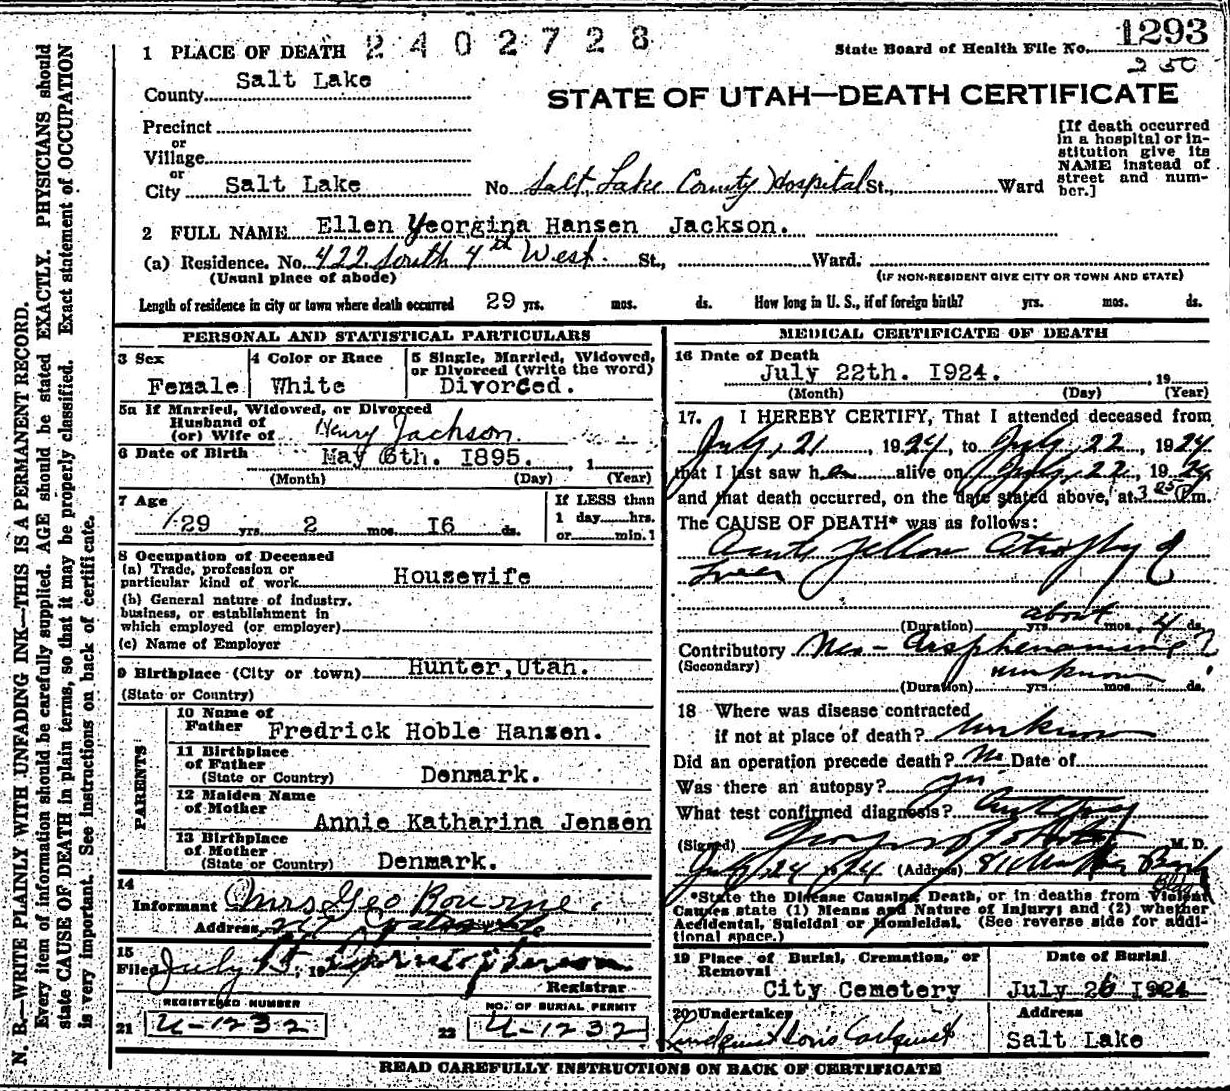 N. B.—WRITE PLAINLY WITH UNFADING INK—THIS IS A PERMANENT RECORD.
Every item of information should be carefully supplied. AGE should be stated EXACTLY. PHYSICIANS should
state CAUSE OF DEATH in plain terms, so that it may be properly classified. Exact statement of OCCUPATION
is very important. See instructions on back of certificate.
1 PLACE OF DEATH 2402728
State Board of Health File No. 1293
250
County Salt Lake
STATE OF UTAH—DEATH CERTIFICATE
Precinct
or
Village
or
City Salt Lake No. Salt Lake County Hospital St., Ward
[If death occurred
in a hospital or in-
stitution give its
NAME instead of
street and num-
ber.]
2 FULL NAME Ellen Yeorgina Hansen Jackson.
(a) Residence. No. 422 South 4th West. St., Ward.
(Usual place of abode) (IF NON-RESIDENT GIVE CITY OR TOWN AND STATE)
Length of residence in city or town where death occurred 29 yrs. mos. ds. How long in U. S., if of foreign birth? yrs. mos. ds.
PERSONAL AND STATISTICAL PARTICULARS
3 Sex
Female
4 Color or Race
White
5 Single, Married, Widowed,
or Divorced (write the word)
Divorced.
5a If Married, Widowed, or Divorced
Husband of
(or) Wife of Henry Jackson.
6 Date of Birth May 6th. 1895. , 1
(Month) (Day) (Year)
7 Age
29 yrs. 2 mos. 16 ds.
If LESS than
1 day hrs.
or min.?
8 Occupation of Deceased
(a) Trade, profession or
particular kind of work Housewife
(b) General nature of industry,
business, or establishment in
which employed (or employer)
(c) Name of Employer
9 Birthplace (City or town) Hunter, Utah.
(State or Country)
PARENTS
10 Name of
Father Fredrick Hoble Hansen.
11 Birthplace
of Father
(State or Country) Denmark.
12 Maiden Name
of Mother
Annie Katharina Jensen
13 Birthplace
of Mother
(State or Country) Denmark.
14
Informant Mrs Geo Bourne.
Address
15
Filed July , 19
Registrar
REGISTERED NUMBER
21 U-1232
NO. OF BURIAL PERMIT
22 U-1232
MEDICAL CERTIFICATE OF DEATH
16 Date of Death
July 22th. 1924. , 19
(Month) (Day) (Year)
17. I HEREBY CERTIFY, That I attended deceased from
July, 21, 1924, to July, 22, 1924
that I last saw her alive on July, 22, 1924
and that death occurred, on the date stated above, at 3 25 P m.
The CAUSE OF DEATH* was as follows:
Acute Yellow Atrophy of
Liver
about
(Duration) yrs. mos. 4 ds.
Contributory Neo-Arsphenamine?
(Secondary)
unknown
(Duration) yrs. mos. ds.
18 Where was disease contracted
if not at place of death? Unknown
Did an operation precede death? No Date of
Was there an autopsy? Yes
What test confirmed diagnosis? Autopsy
(Signed) M. D.
July, 24 1924 (Address) Bank
Bldg
*State the Disease Causing Death, or in deaths from Violent
Causes state (1) Means and Nature of Injury; and (2) whether
Accidental, Suicidal or Homicidal. (See reverse side for addi-
tional space.)
19 Place of Burial, Cremation, or
Removal
City Cemetery
Date of Burial
July 26 1924
20 Undertaker
Address
Salt Lake
READ CAREFULLY INSTRUCTIONS ON BACK OF CERTIFICATE